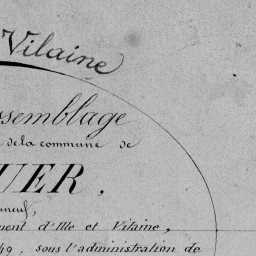 Vilaine
ssemblage
de la commune de
UER.
neuf,
ment d'Ille et Vilaine,
49, sous l'administration de